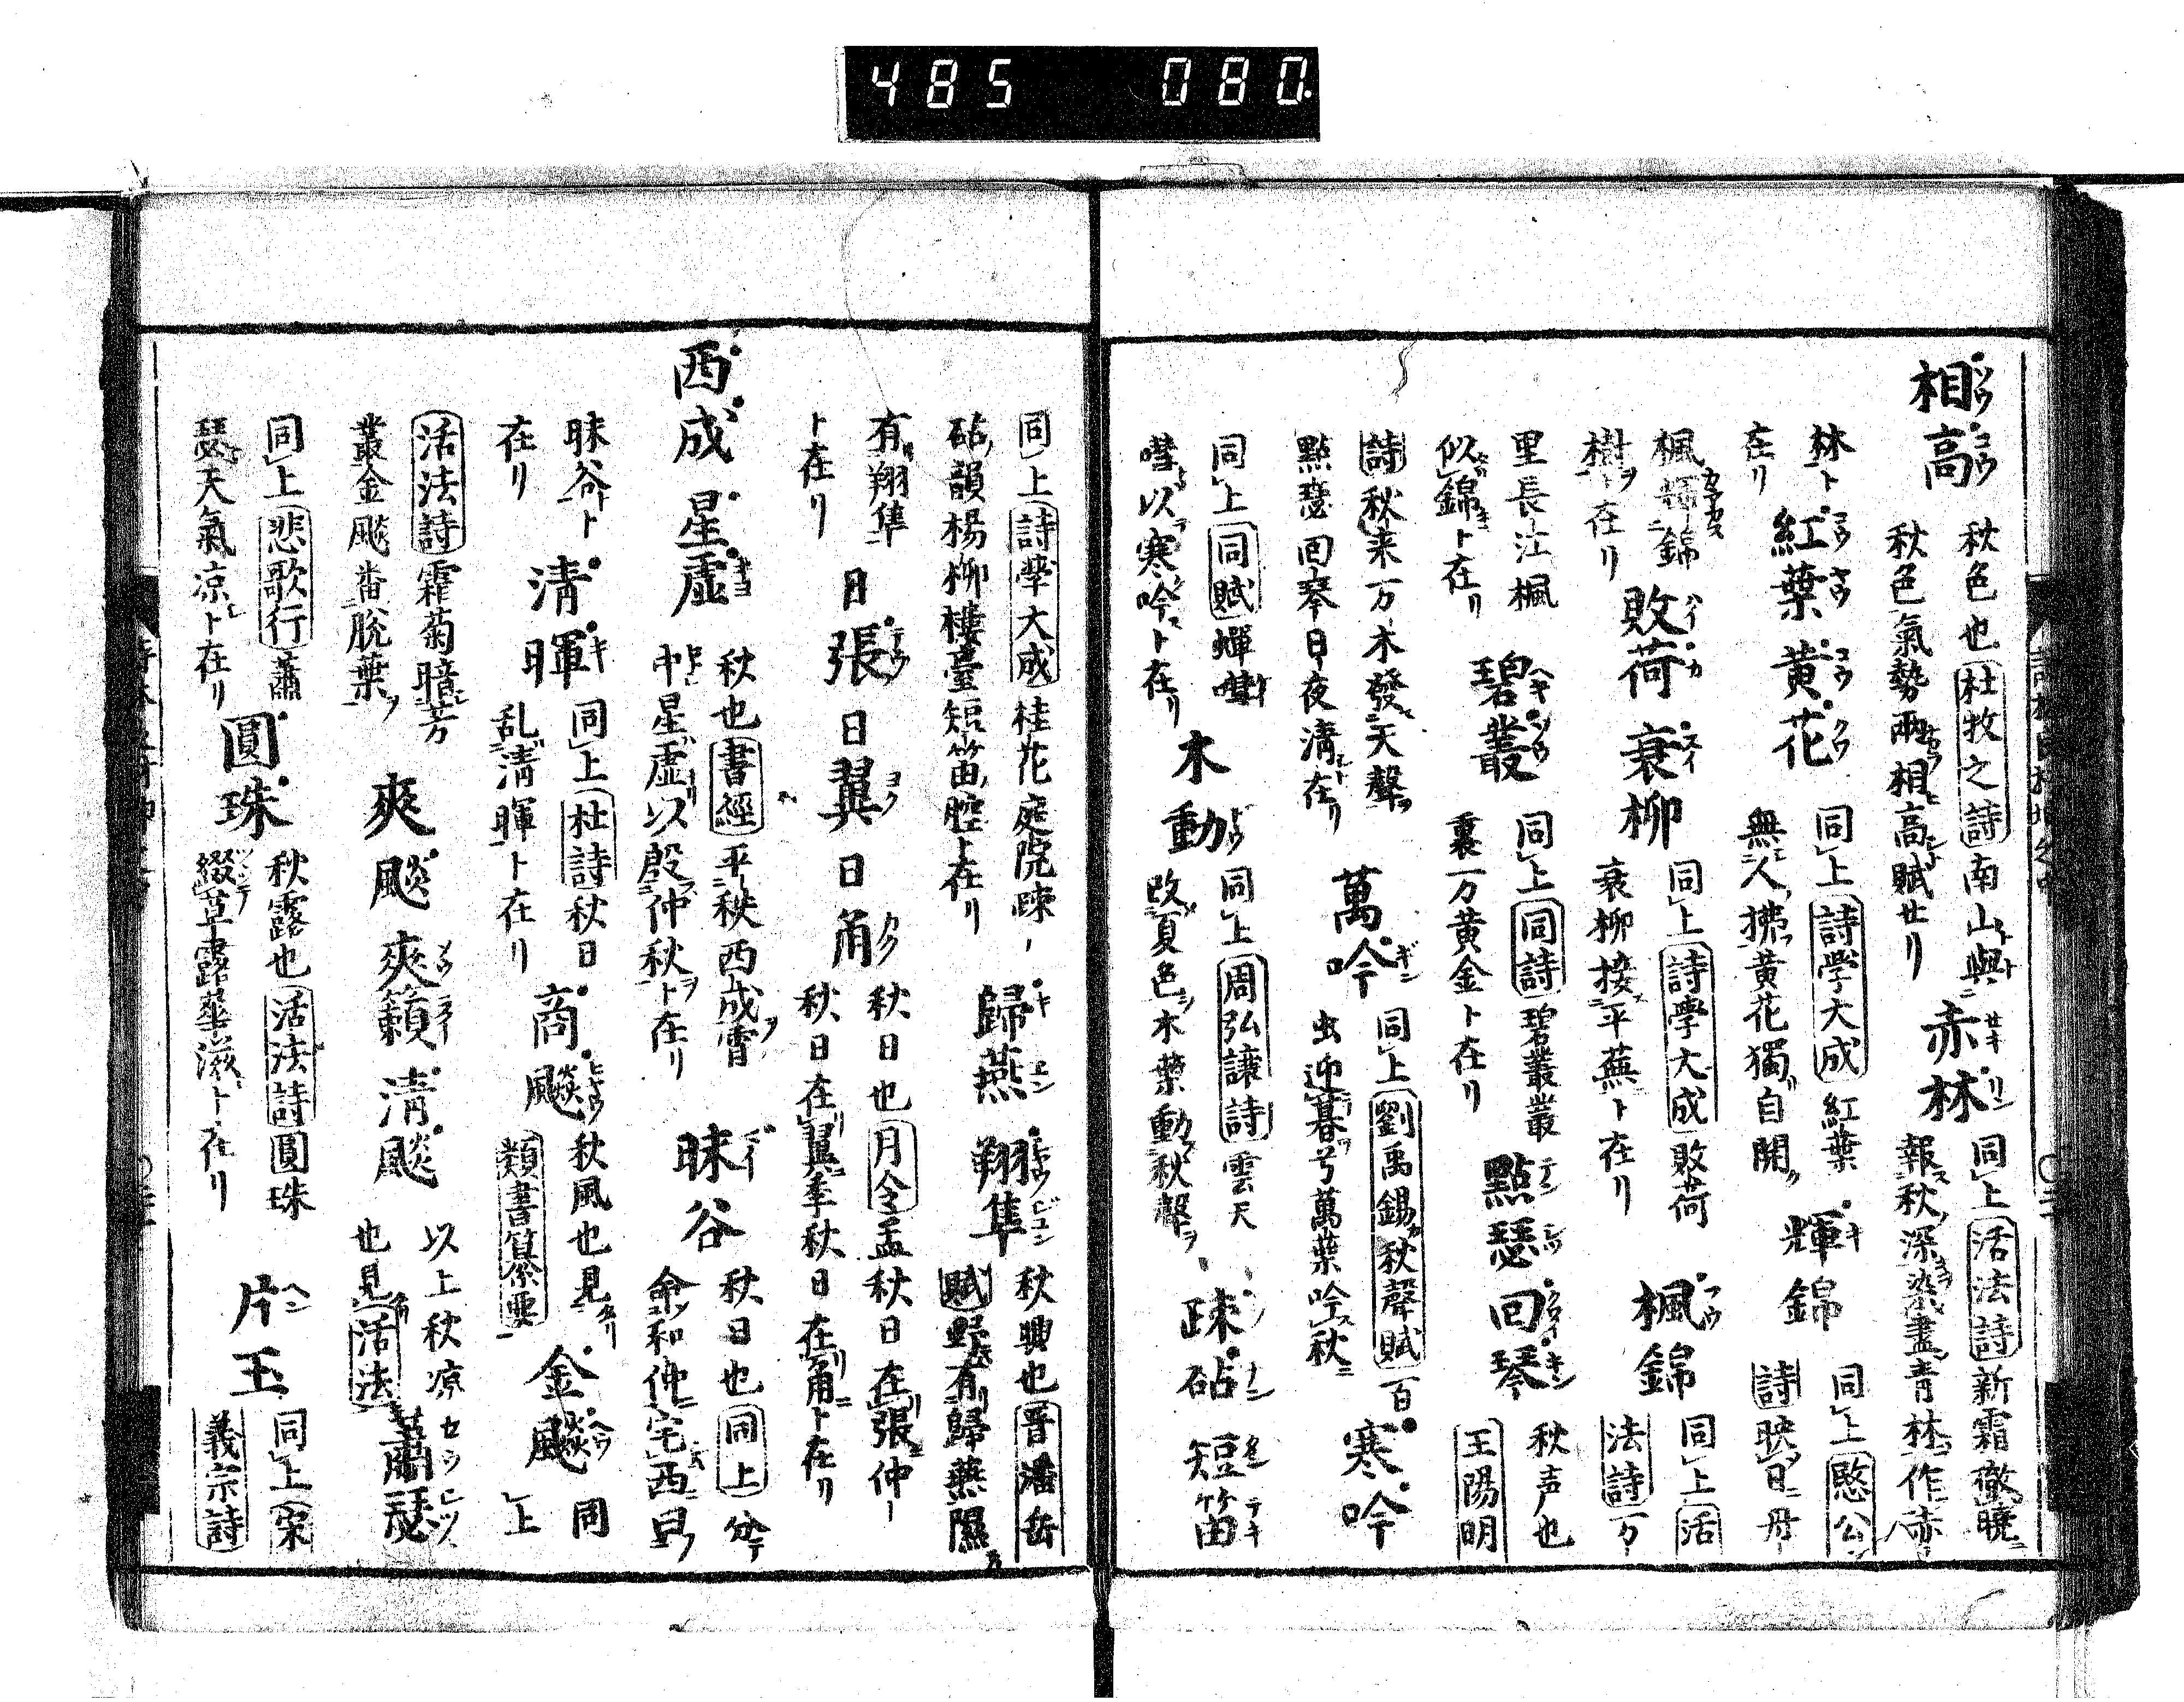 485 080.
相高 秋色也杜牧之詩南山與
秋色氣勢兩相高賦廿リ
赤林 同上活法詩新霜徹曉
報秋深染盡青林作赤
林ト在リ
紅葉黄花 同上詩学大成紅葉
無人拂黄花獨自開
輝錦 同上愍公
詩映日丹
楓輝錦
樹ヲ在リ
敗荷衰柳 同上詩學大成敗荷
衰柳接平蕪ト在リ
楓錦 同上活
法詩万
里長江楓
似錦ト在リ
碧叢 同上同詩碧叢叢
裏一万黄金ト在リ
點瑟回琴 秋声也
王陽明
詩秋来万木發天聲
點瑟回琴日夜清在リ
萬吟 同上劉禹錫秋聲賦百
虫迎暮兮萬葉吟秋
寒吟
同上同賦蟬
以寒吟ト在リ
木動 同上周弘讓詩雲天
改夏色木葉動秋聲
踈砧短笛
同上詩學大成桂花庭院踈
砧韻楊柳樓臺短笛腔ト在リ
歸燕翔隼 秋興也晋潘岳
賦野有歸燕隰
有翔隼
ト在リ
日張日翼日角 秋日也月令孟秋日在張仲
秋日在翼季秋日在角ト在リ
西成星虚 秋也書經平秩西成宵
中星虚以殷仲秋ト在リ
昧谷 秋日也同上分
命和仲宅西曰
昧谷ト
在リ
清暉 同上杜詩秋日
乱清暉ト在リ
商飈 秋風也見
類書纂要
金飈 同
上
活法詩霜菊暗芳
叢金飈脱葉
爽飈爽籟清飈 以上秋凉
也見活法
蕭瑟
同上悲歌行蕭
瑟天氣凉ト在リ
圓珠 秋露也活法詩圓珠
綴草露華滋ト在リ
片玉 同上宋
義宗詩